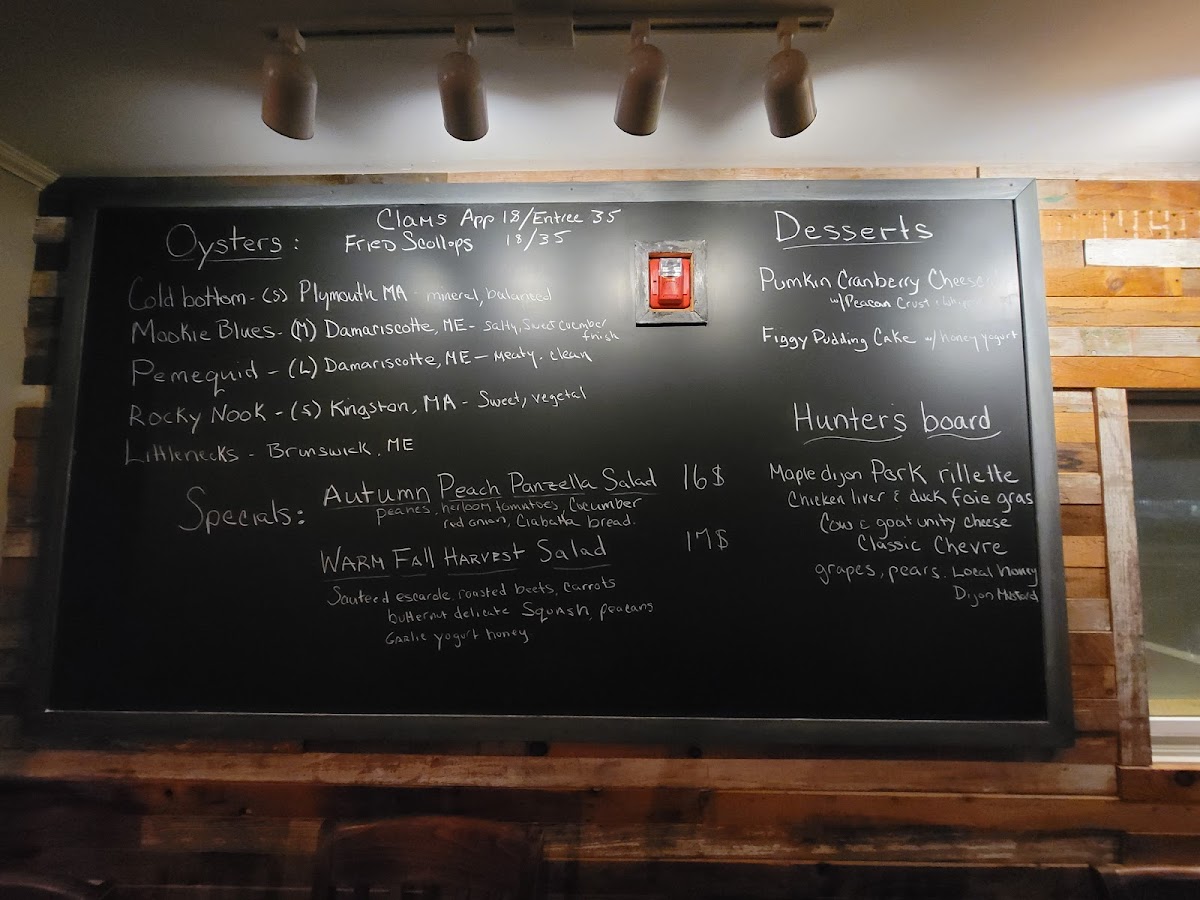 Clams App 18/Entree 35
Fried Scollops 18/35
Oysters:
Cold bottom - (S) Plymouth MA - mineral, balanced
Mookie Blues - (M) Damariscotte, ME - Salty, Sweet cucumber
finish
Pemequid - (L) Damariscotte, ME - Meaty. clean
Rocky Nook - (S) Kingston, MA - Sweet, vegetal
Littlenecks - Brunswick, ME
Specials:
Autumn Peach Panzella Salad 16$
peaches, heirloom tomatoes, Cucumber
red onion, Ciabatta bread.
Warm Fall Harvest Salad 17$
Sauteed escarole, roasted beets, carrots
butternut delicate Squash, peacans
Garlic yogurt honey
Desserts
Pumkin Cranberry
w/Peacan Crust
Figgy Pudding Cake w/ honey yogurt
Hunter's board
Maple dijon Pork rillette
Chicken liver & duck foie gras
Cow & goat unity cheese
Classic Chevre
grapes, pears. Local honey
Dijon Mustard